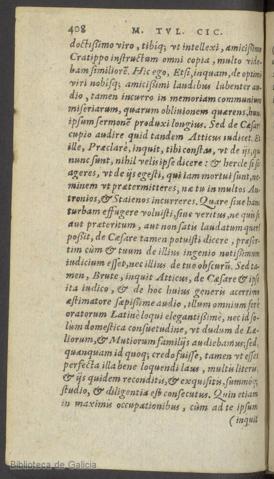 408 M. TVL. CIC.
doctißimo viro, tibiq; vt intellexi, amicißimo
Cratippo instructum omni copia, multo vide
bam similiorē. Hic ego, Etsi, inquam, de optimi
viri nobisq; amicißimi laudibus lubenter au-
dio, tamen incurro in memoriam communium
miseriarum, quarum obliuionem quærens, hunc
ipsum sermonē produxi longius. Sed de Cæsare
cupio audire quid tandem Atticus iudicet. Et
ille, Præclarè, inquit, tibi constas, vt de ijs, qui
nunc sunt, nihil velis ipse dicere: & hercle si sic
ageres, vt de ijs egisti, qui iam mortui sunt, ne-
minem vt prætermitteres, næ tu in multos Au-
tronios, & Staienos incurreres. Quare siue hanc
turbam effugere voluisti, siue veritus, ne quis se
aut præteritum, aut non satis laudatum queri
possit, de Cæsare tamen potuisti dicere, præser-
tim cùm & tuum de illius ingenio notißimum
iudicium esset, nec illius de tuo obscurū. Sed ta-
men, Brute, inquit Atticus, de Cæsare & ipse
ita iudico, & de hoc huius generis acerrimo
æstimatore sæpißimè audio, illum omnium ferè
oratorum Latinè loqui elegantißimè, nec id so-
lum domestica consuetudine, vt dudum de Læ-
liorum, & Mutiorum familijs audiebamus: sed,
quanquam id quoq; credo fuisse, tamen vt esset
perfecta illa bene loquendi laus, multis literis,
& ijs quidem reconditis, & exquisitis, summoq;
studio, & diligentia est consecutus. Quin etiam
in maximis occupationibus, cùm ad te ipsum
(inquit
Biblioteca de Galicia